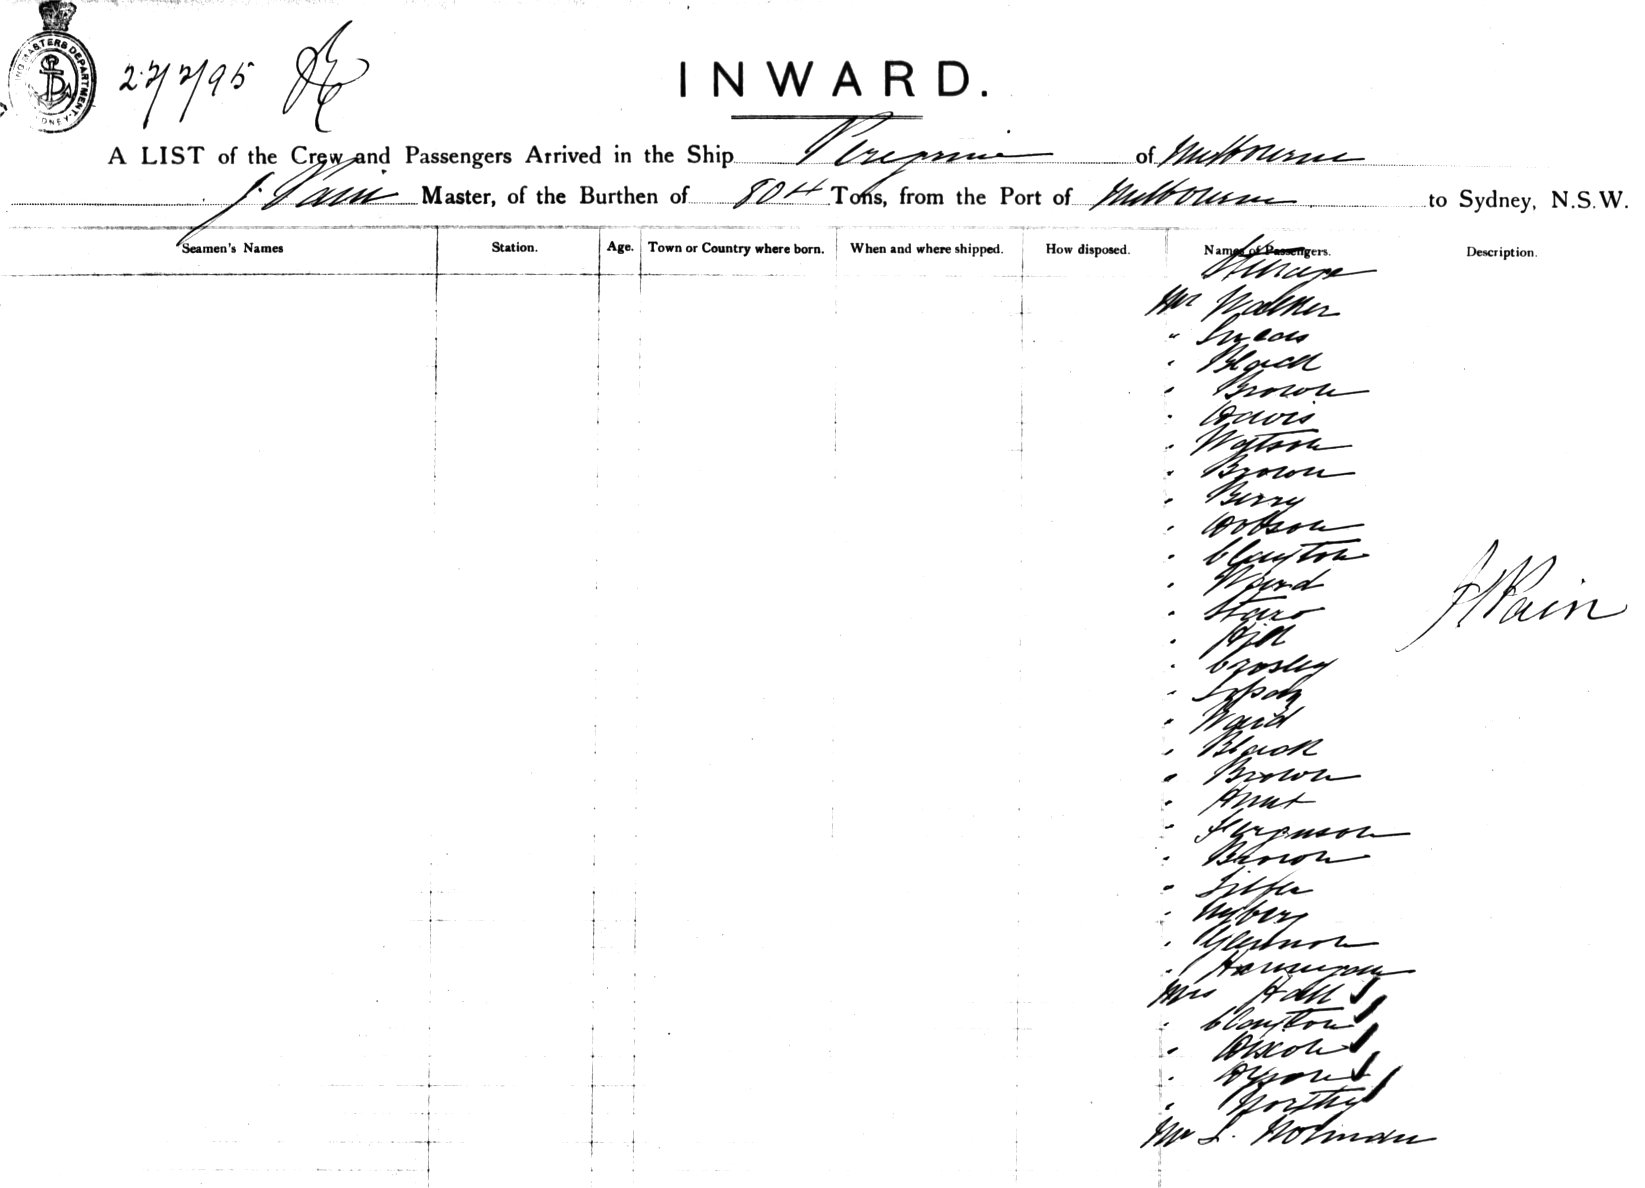 MASTERS DEPARTMENT
22/7/95
INWARD.
A LIST of the Crew and Passengers Arrived in the Ship Peregrine of Melbourne
J. Pain Master, of the Burthen of 804 Tons, from the Port of Melbourne to Sydney, N.S.W.
Seamen's Names Station. Age. Town or Country where born. When and where shipped. How disposed. Names of Passengers. Description.
Steerage
Mr Walker
" Lucas
" Black
" Brown
" Davis
" Watson
" Brown
" Berry
" Dobson
" Clayton
" Ward
" Starr
" Hill
" Crosley
"
" Ward
" Black
" Brown
" Hunt
" Ferguson
" Brown
"
" Nyberg
" Glennon
"
Mrs Hall
" Clayton
" Dixon
" Dyson
" Northy
Mr L. Holman
J Pain